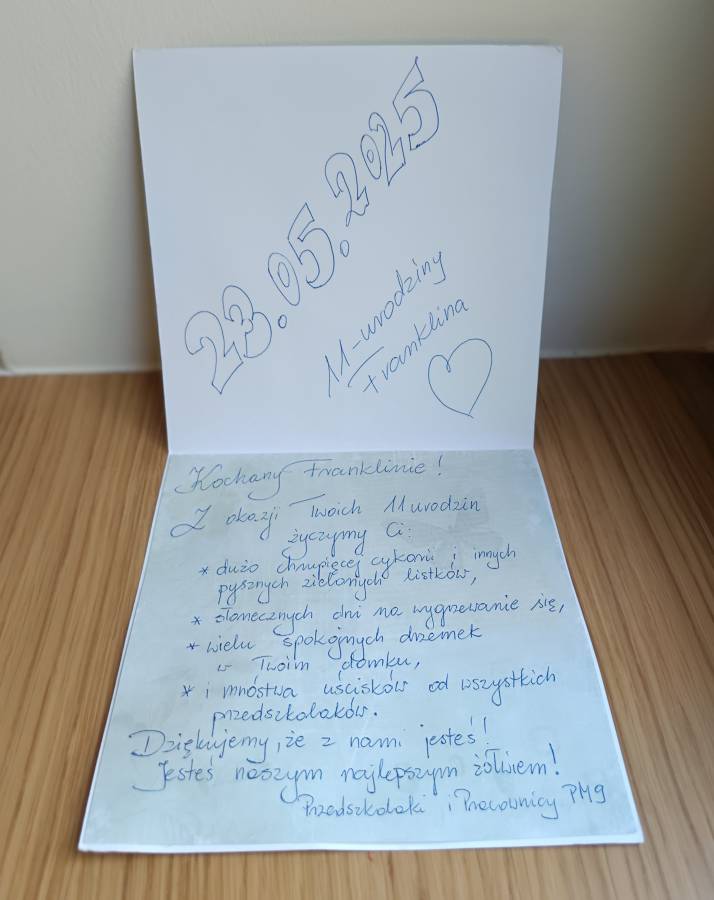 23.05.2025
11-urodziny
Franklina
Kochany Franklinie!
Z okazji Twoich 11 urodzin
życzymy Ci:
* dużo chrupiącej cykorii i innych
pysznych zielonych listków,
* słonecznych dni na wygrzewanie się,
* wielu spokojnych drzemek
w Twoim domku,
* i mnóstwa uścisków od wszystkich
przedszkolaków.
Dziękujemy, że z nami jesteś!
Jesteś naszym najlepszym żółwiem!
Przedszkolaki i Pracownicy PM9